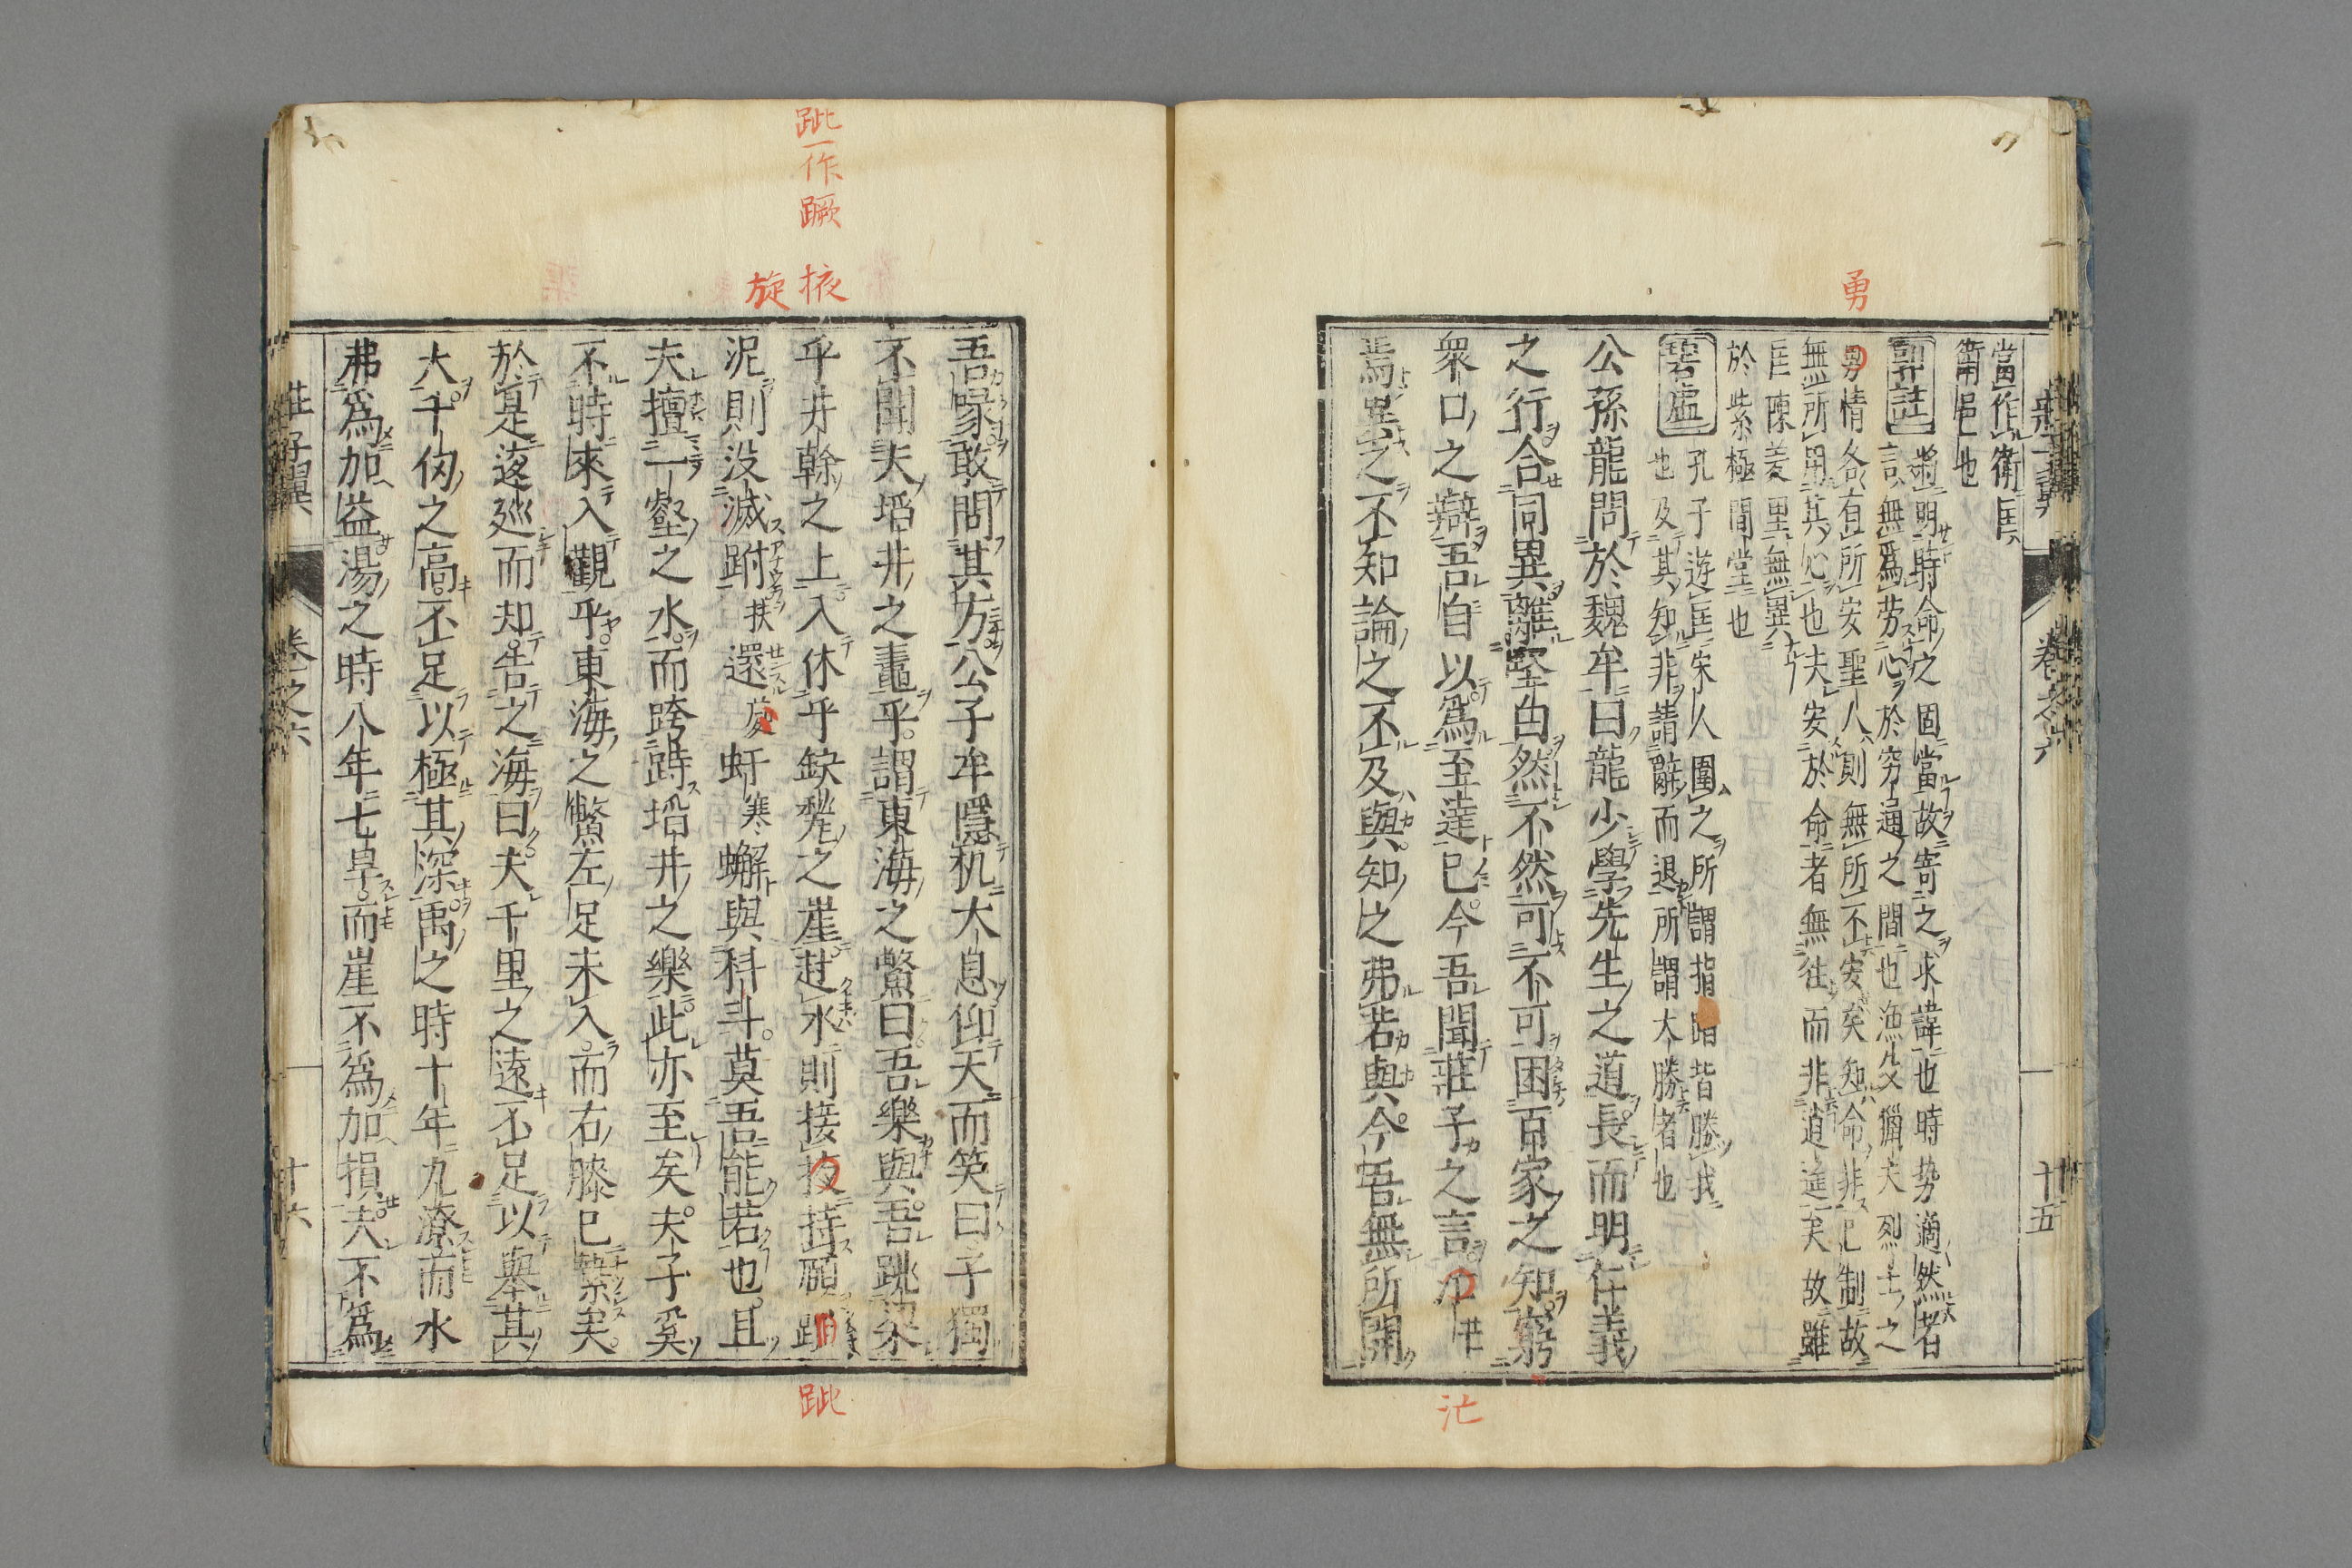 莊子翼 卷之六 十五
當作衛匡
衛邑也
郭註 將明時命之固當故寄之求諱也時势適然者
言無爲劳心於穷通之間也漁父獵夫烈士之
勇
情各有所安聖人則無所不安矣知命非己制故
無所用其心也夫安於命者無往而非逍遥矣故雖
匡陳羑里無異
於紫極間堂也
筆乗 孔子遊匡宋人圍之所謂指 皆勝我
也及其知非請辭而退所謂大勝者也
公孫龍問於魏牟曰龍少學先生之道長而明仁義
之行合同異離堅白然不然可不可困百家之知窮
衆口之辯吾自以爲至達已今吾聞莊子之言 
茫
焉異之不知論之不及與知之弗若與今吾無所開
吾喙敢問其方公子牟隱机大息仰天而笑曰子獨
不聞夫埳井之鼃乎謂東海之鱉曰吾樂與吾跳梁
跐一作蹶
掖
乎井幹之上入休乎缺甃之崖赴水則接技持頤蹈
跐
旋
泥則没滅跗扶還 虷寒蠏與科斗莫吾能若也且
夫擅一壑之水而跨跱埳井之樂此亦至矣夫子奚
不時來入觀乎東海之鱉左足未入而右膝已縶矣
於是逡廵而却告之海曰夫千里之遠不足以舉其
大千仞之高不足以極其深禹之時十年九潦而水
弗爲加益湯之時八年七旱而崖不爲加損夫不爲
莊子翼 卷之六 十六